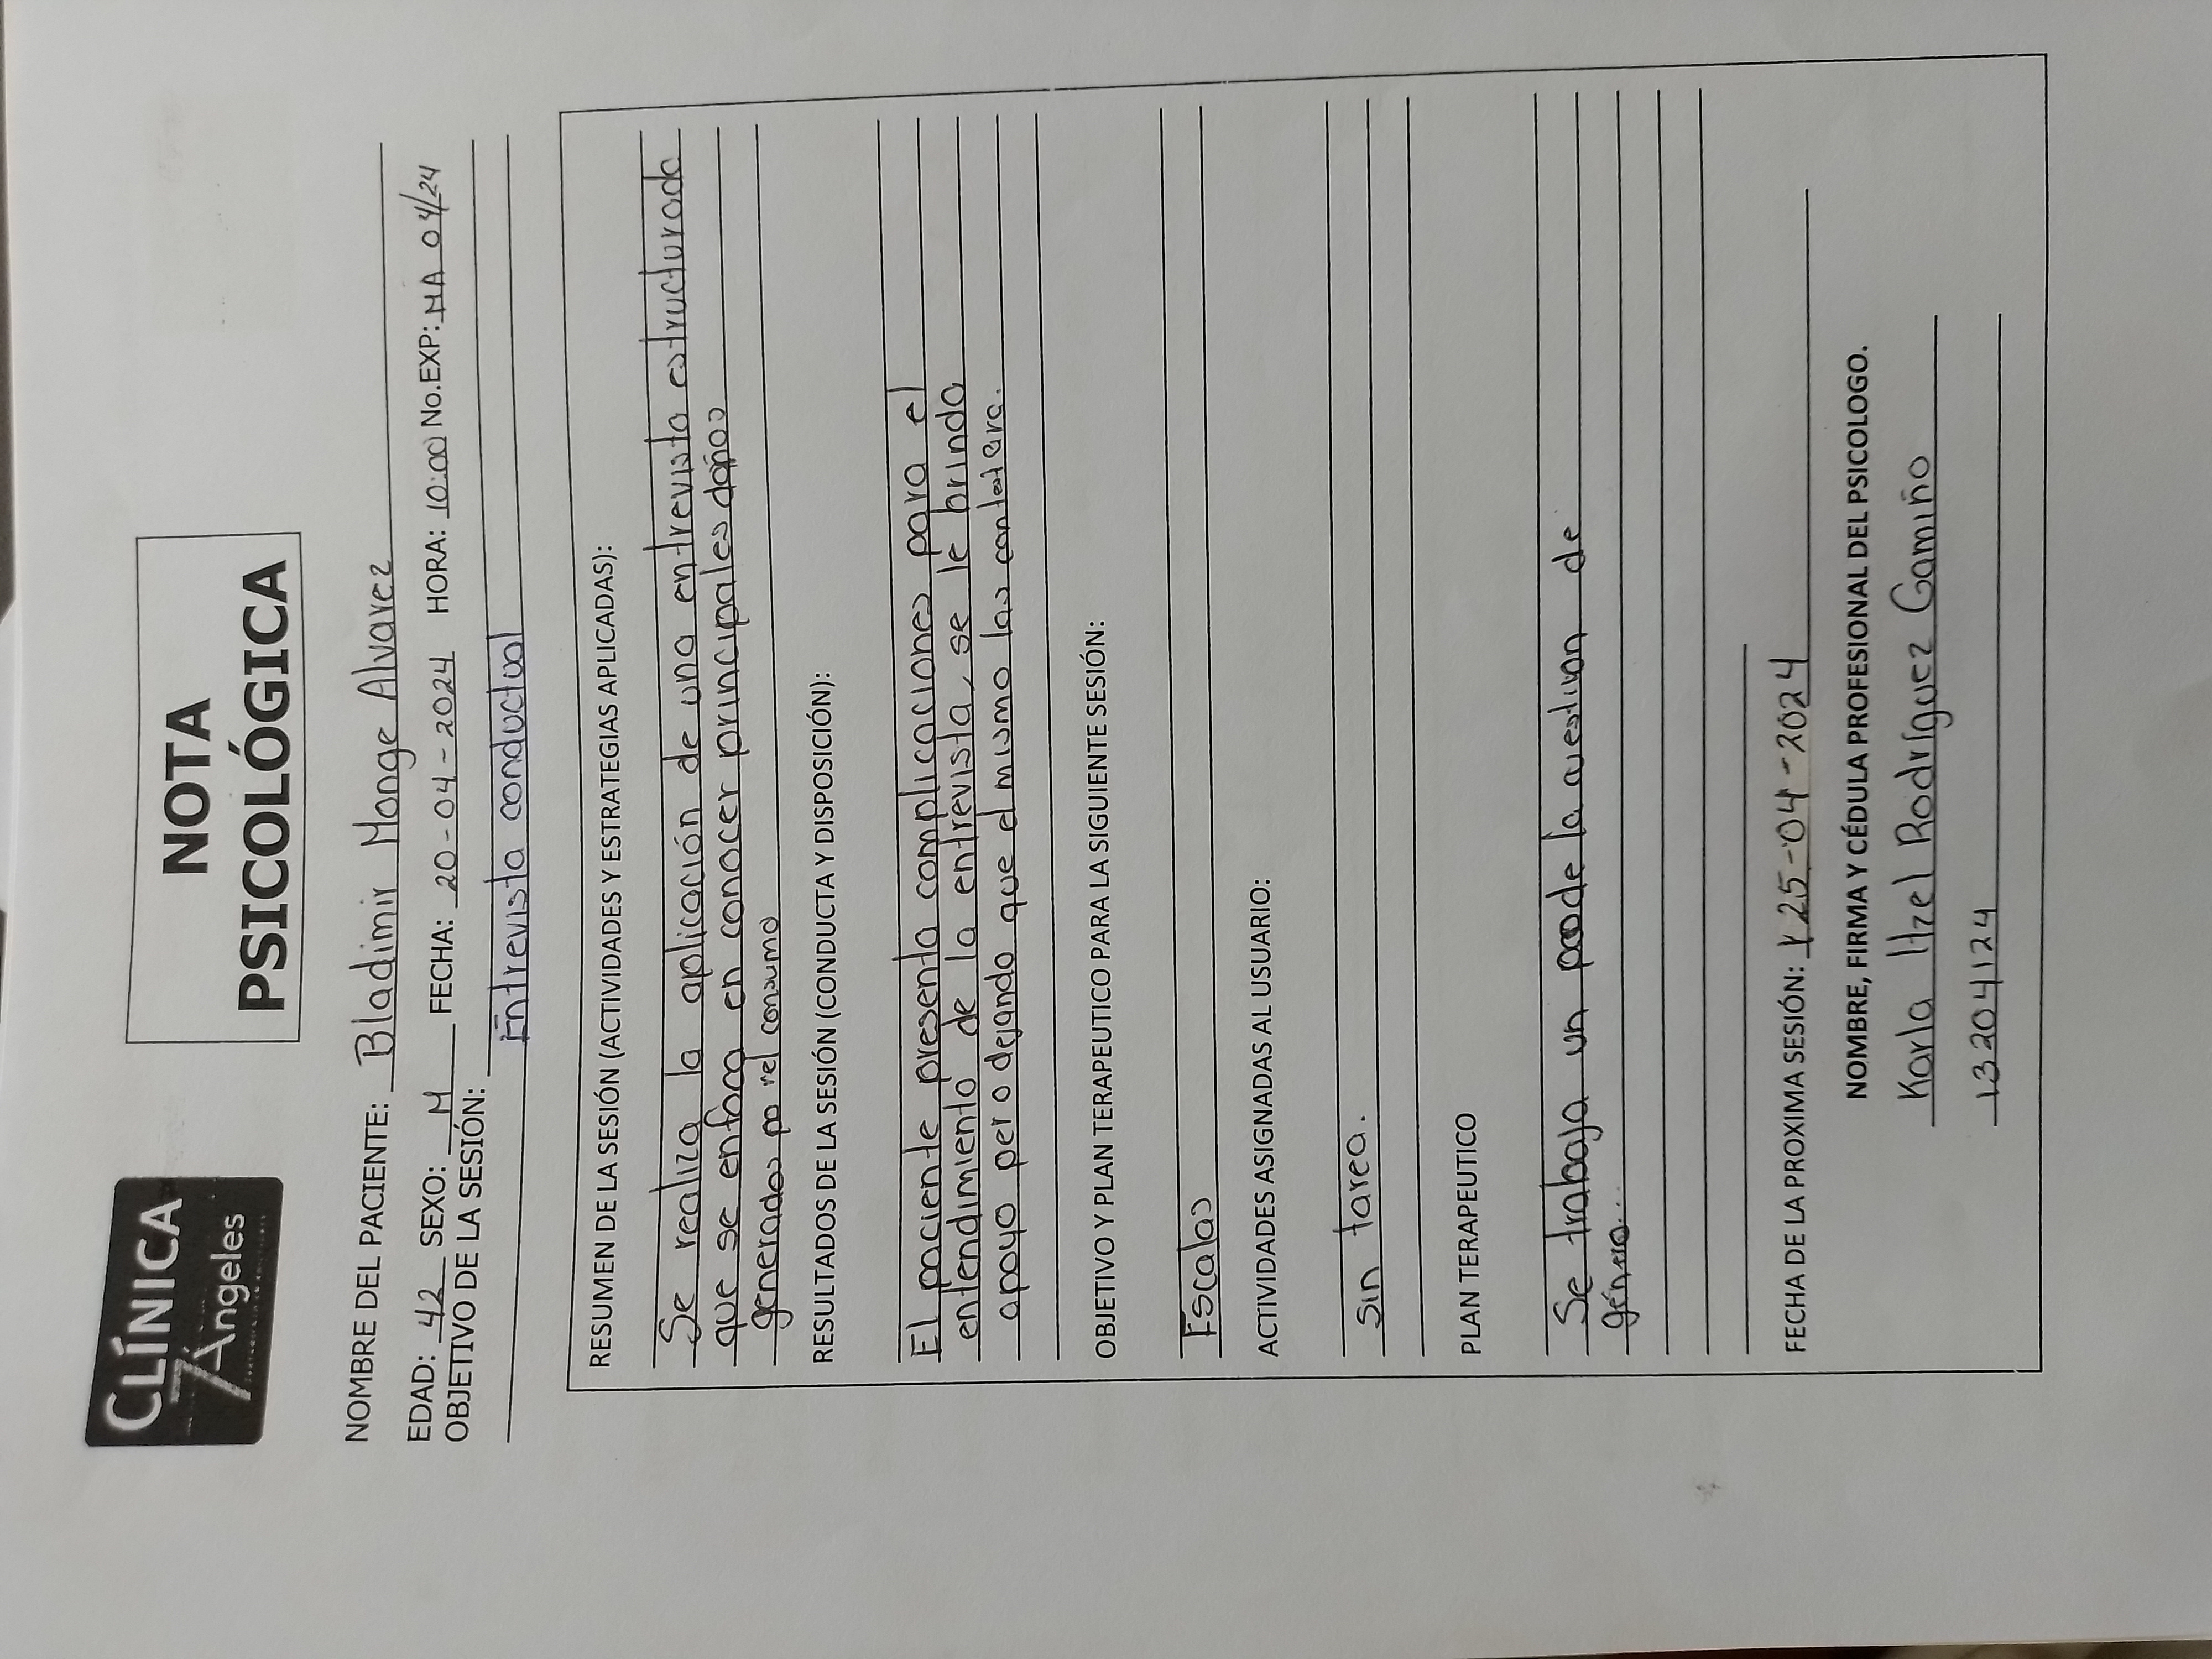 CLÍNICA
7 Ángeles
NOTA
PSICOLÓGICA
NOMBRE DEL PACIENTE: Bladimir Monge Alvarez
EDAD: 42 SEXO: M FECHA: 20-04-2024 HORA: 10:00 No.EXP: MA 04/24
OBJETIVO DE LA SESIÓN:
Entrevista conductual
RESUMEN DE LA SESIÓN (ACTIVIDADES Y ESTRATEGIAS APLICADAS):
Se realiza la aplicación de una entrevista estructurada
que se enfoca en conocer principales daños
generados po rel consumo
RESULTADOS DE LA SESIÓN (CONDUCTA Y DISPOSICIÓN):
El paciente presenta complicaciones para el
entendimiento de la entrevista, se le brinda
apoyo pero dejando que el mismo las contestara.
OBJETIVO Y PLAN TERAPEUTICO PARA LA SIGUIENTE SESIÓN:
Escalas
ACTIVIDADES ASIGNADAS AL USUARIO:
sin tarea.
PLAN TERAPEUTICO
Se trabaja un poode la cuestion de
género...
FECHA DE LA PROXIMA SESIÓN: 25-04-2024
NOMBRE, FIRMA Y CÉDULA PROFESIONAL DEL PSICOLOGO.
Karla Itzel Rodríguez Gamiño
13204124